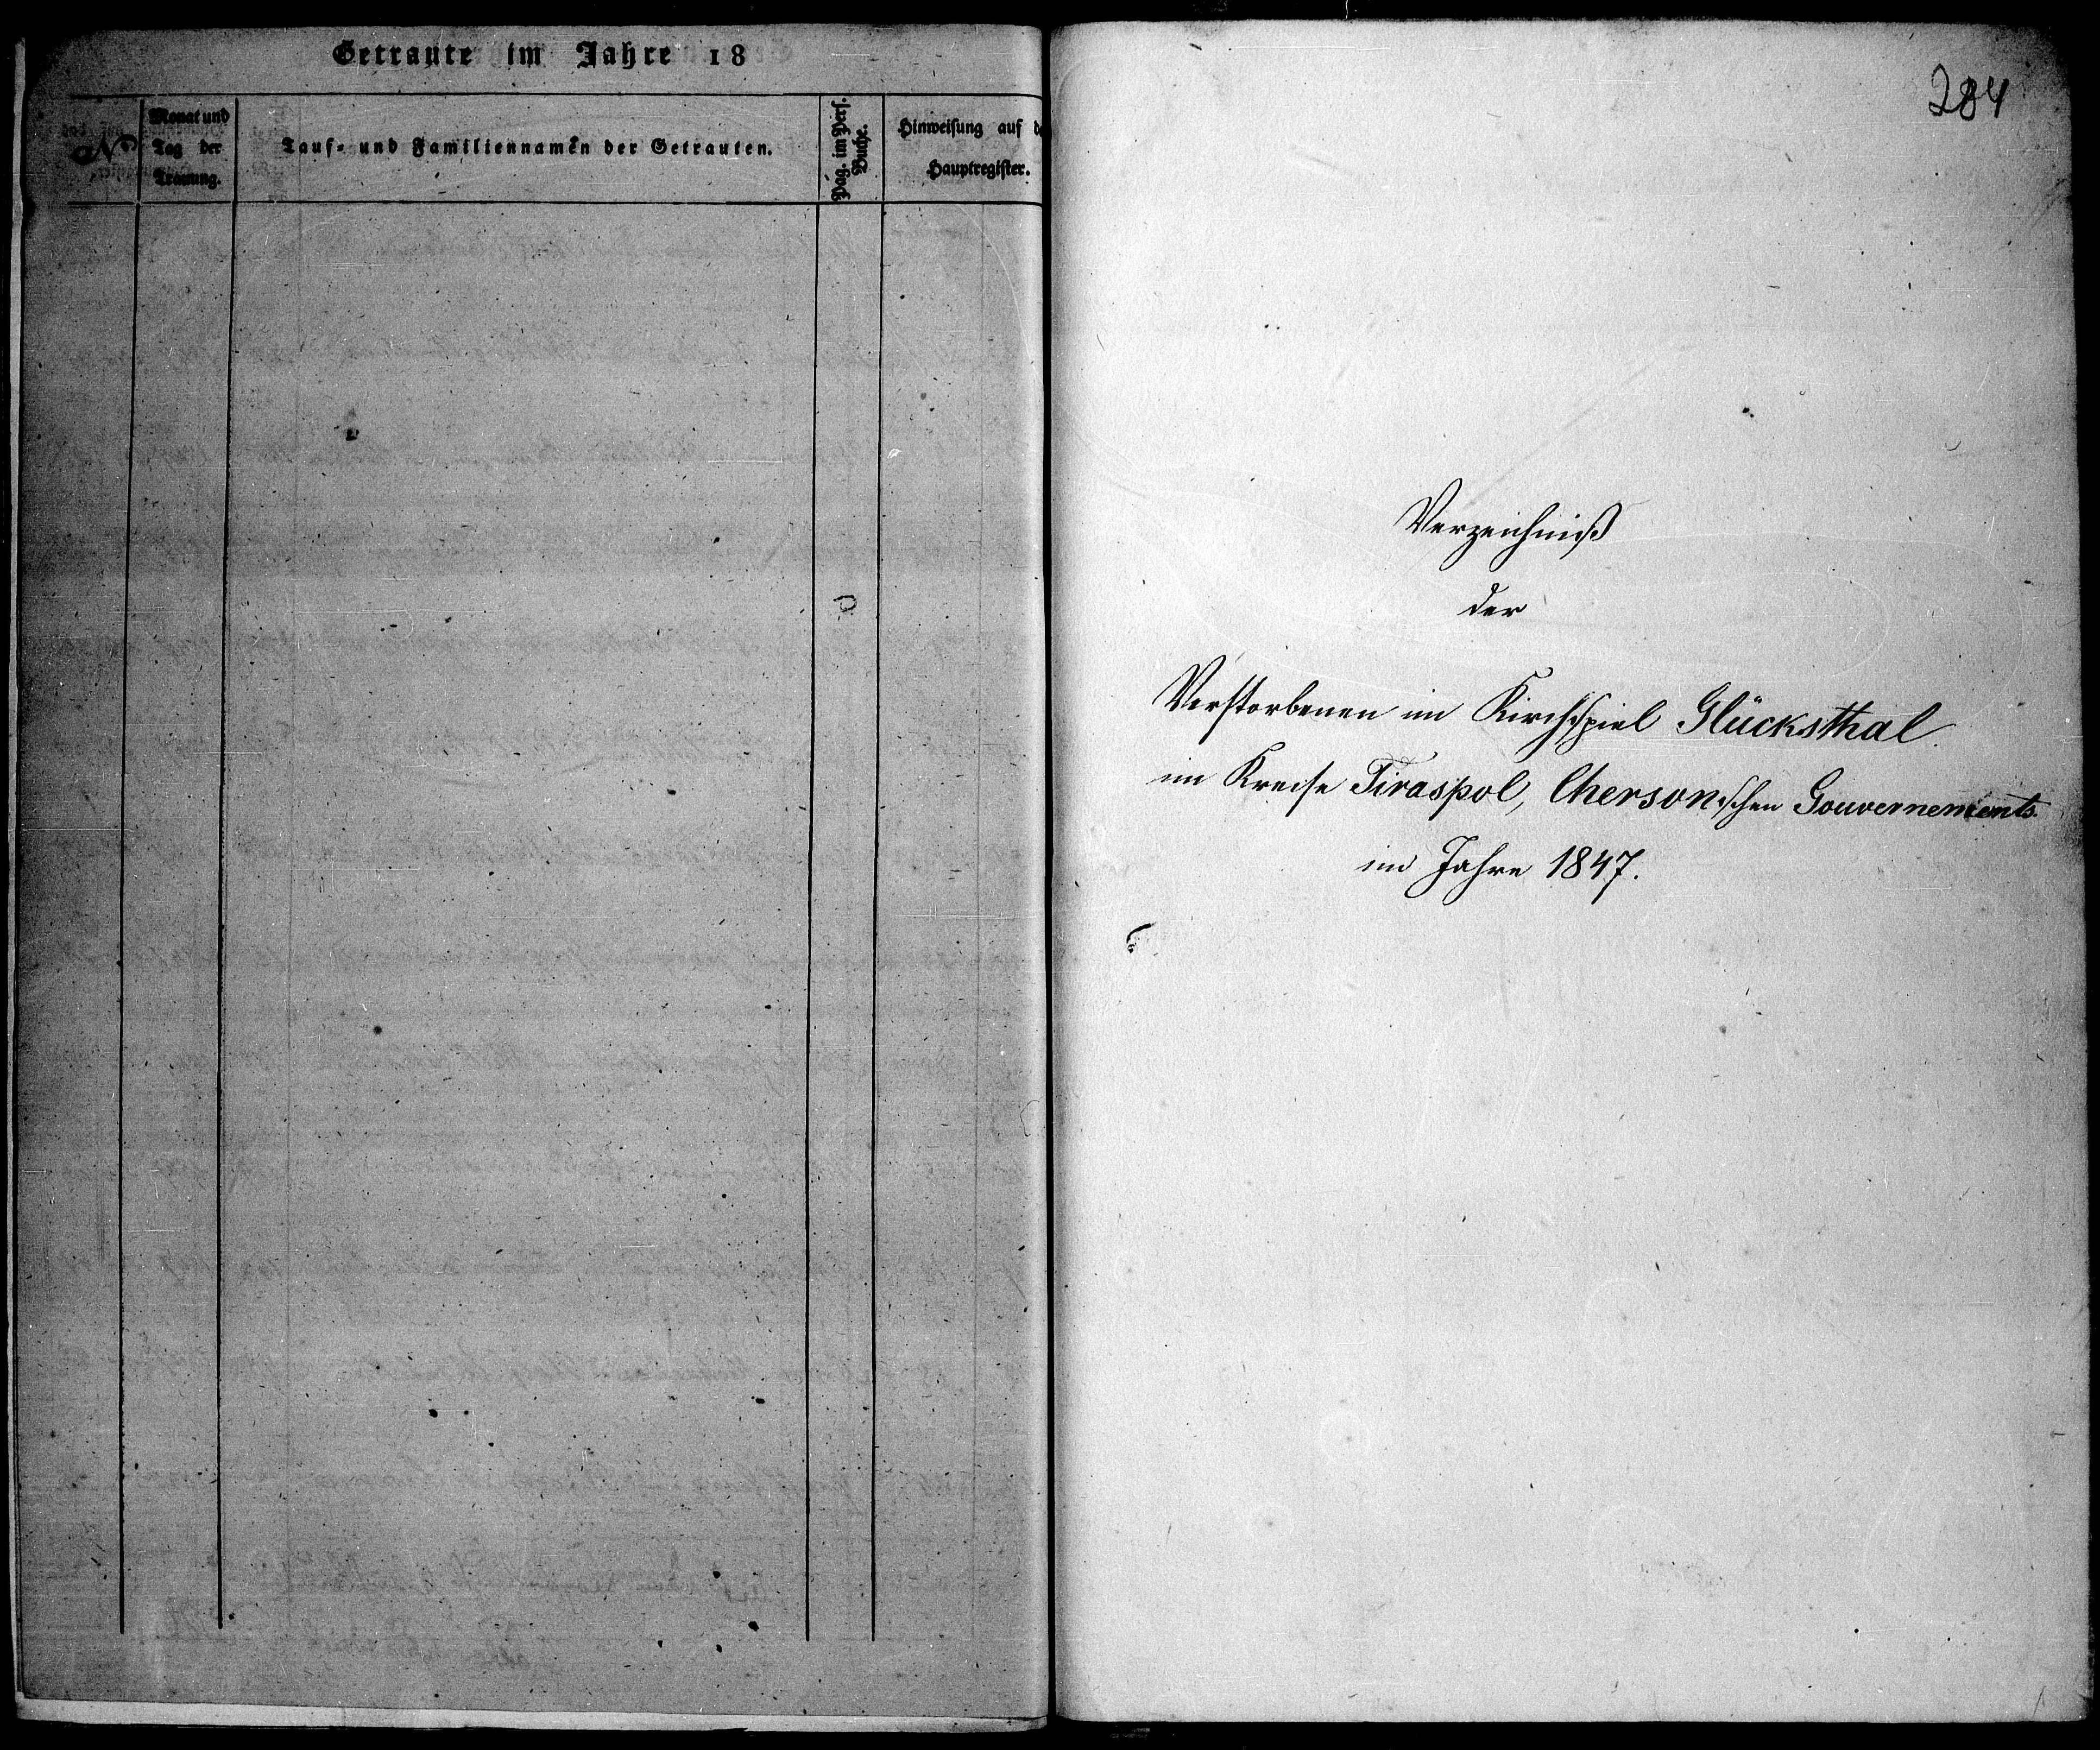 Getraute im Jahre 18
№
Monat und
Tag der
Trauung.
Tauf- und Familiennamen der Getrauten.
Pag. im Pers.
Buche.
Hinweisung auf d
Hauptregister.
284
Verzeichniß
der
Verstorbenen im Kirchspiel Glücksthal
im Kreise Tiraspol, Cherson'schen Gouvernements.
im Jahre 1847.